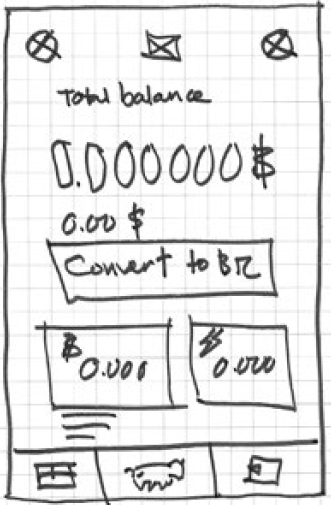 Total balance
0.000000 ₿
0.00 $
Convert to
₿ 0.000
0.000